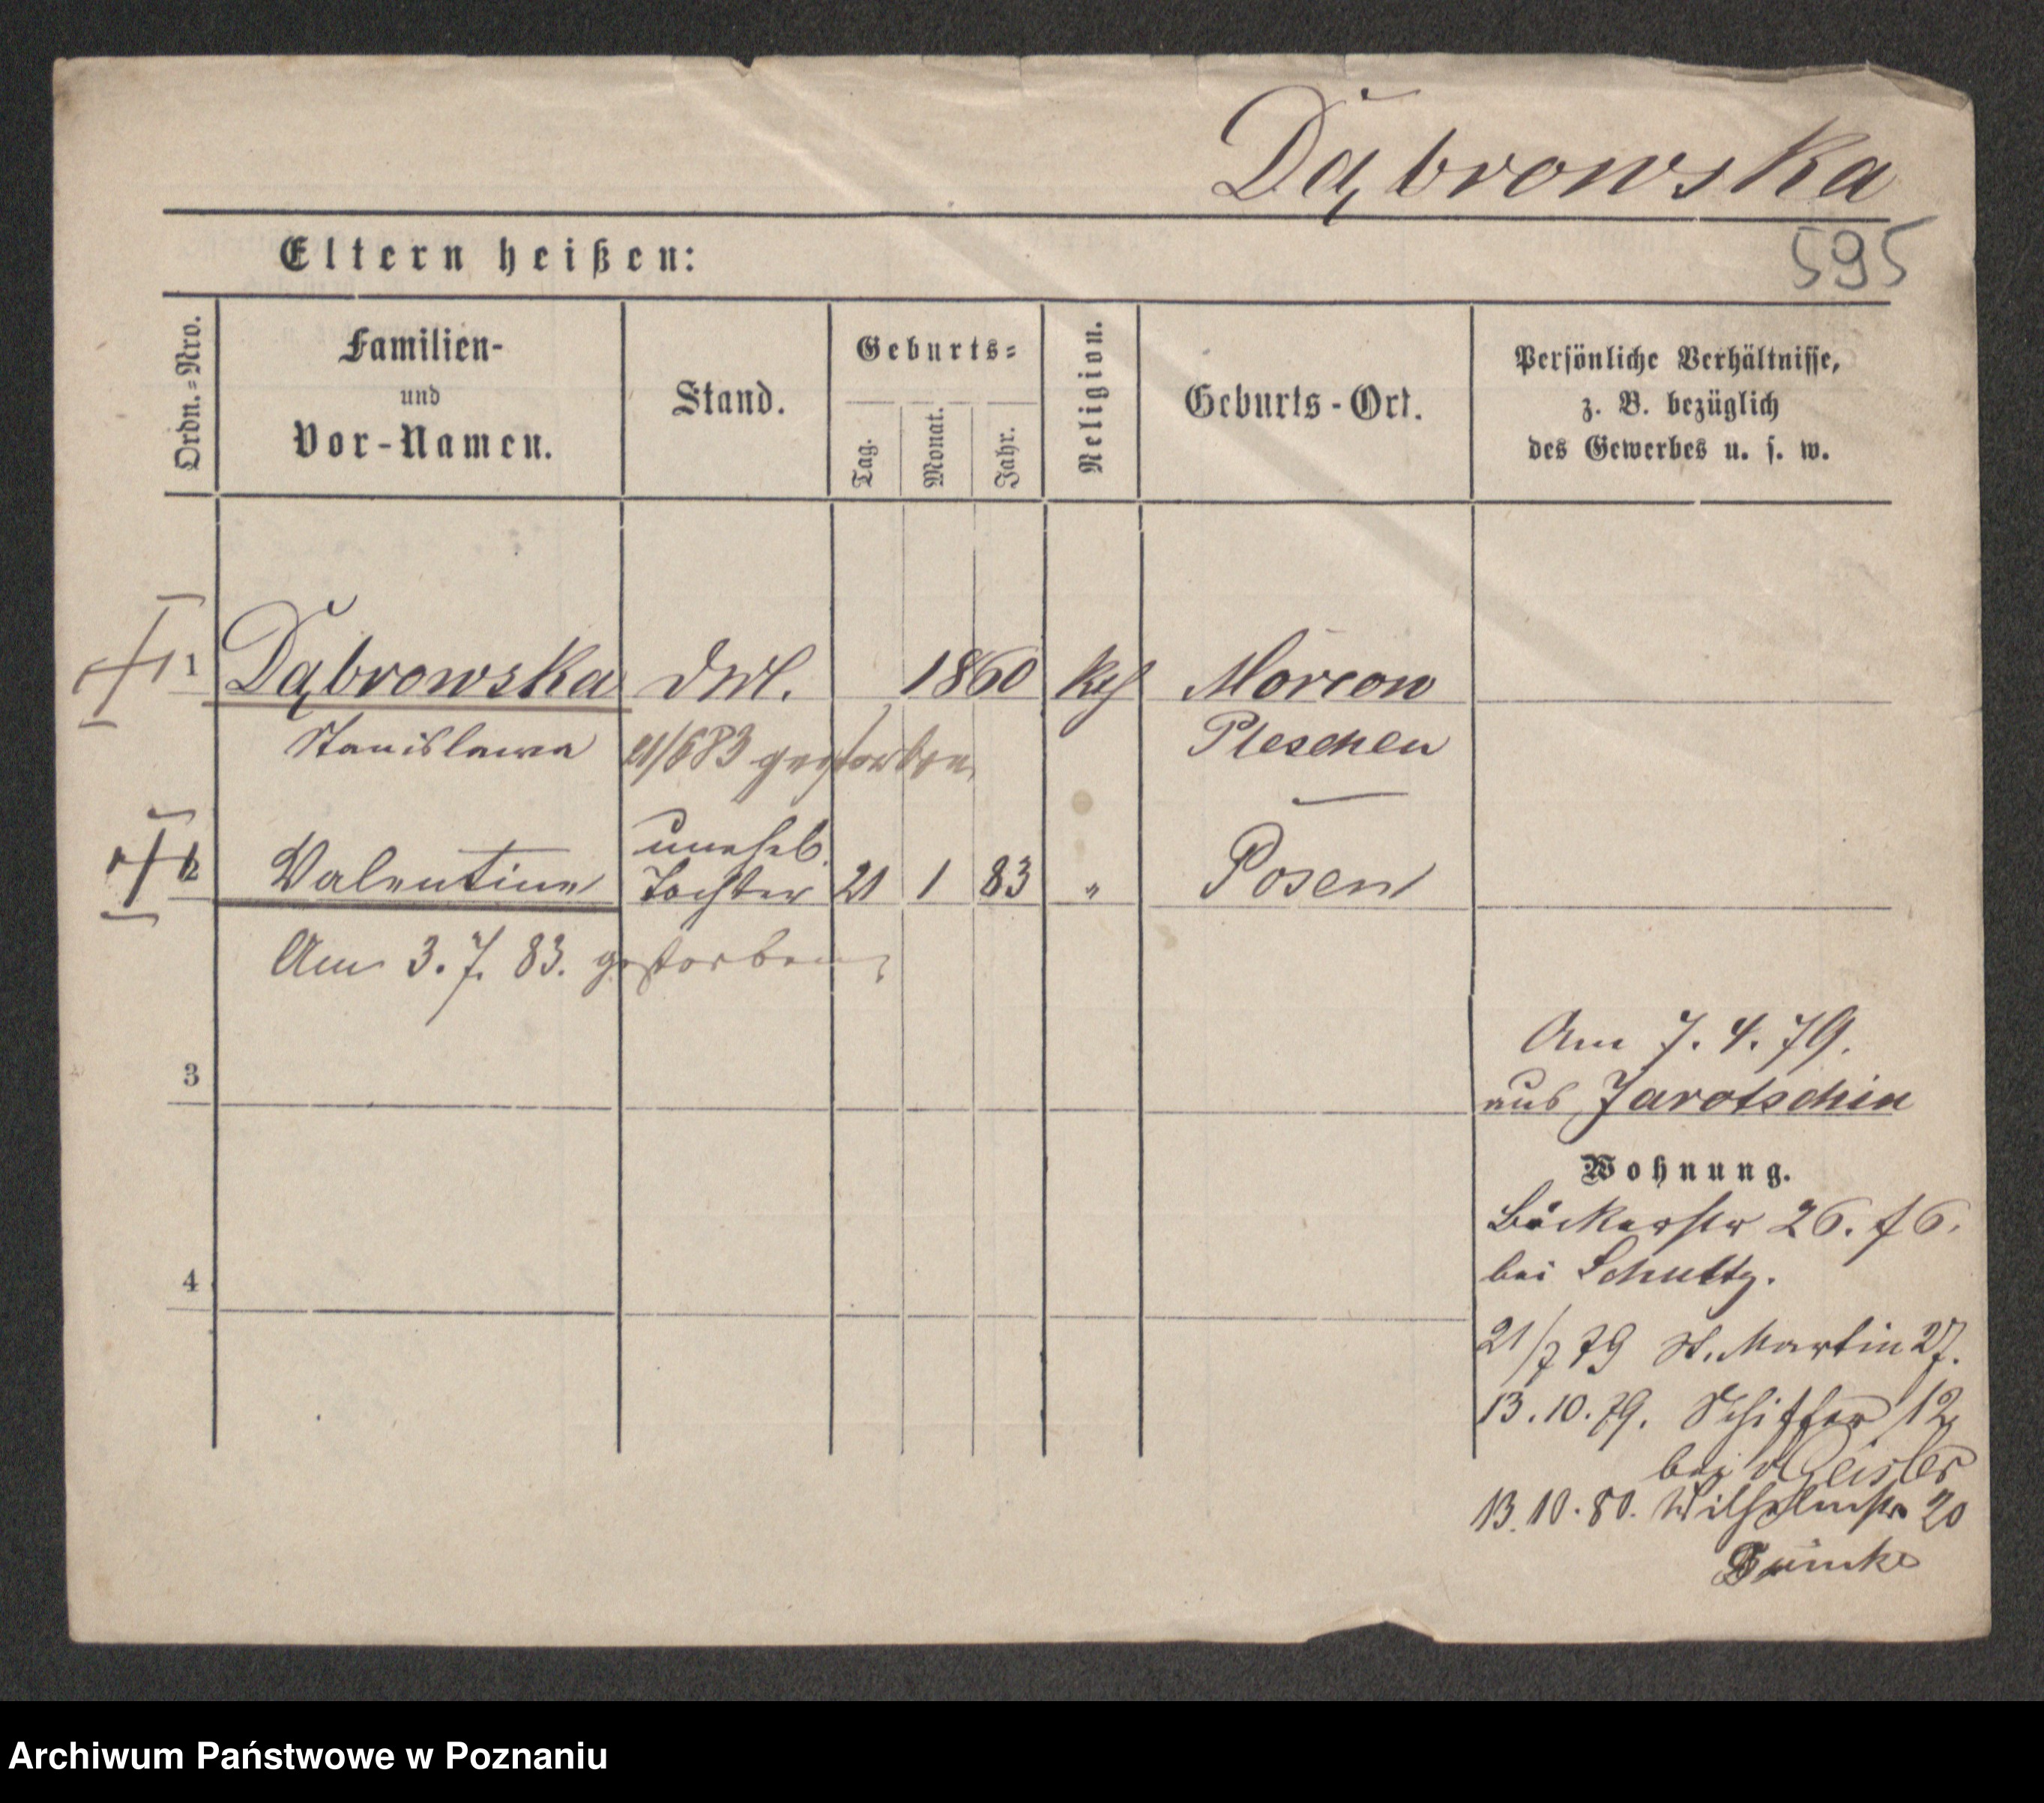 Dąbrowska
595
Eltern heißen:
Ordn.=Nro.
Familien-
und
Vor-Namen.
Stand.
Geburts=
Tag.
Monat.
Jahr.
Religion.
Geburts-Ort.
Persönliche Verhältnisse,
z. B. bezüglich
des Gewerbes u. s. w.
1 Dąbrowska 1860 Morcow
Stanislawa gestorben Pleschen
2 Valentine unehel. Tochter 21 1 83 " Posen
Am 3. 7. 83. gestorben
3
Am 7. 4. 79.
aus Jarotschin
Wohnung.
Bäckerstr 26.
bei Schultz.
4
21/7 79 St. Martin 27.
13.10.79. Schiffer 12
bei Geisler
13.10.80. Wilhelmstr 20
Archiwum Państwowe w Poznaniu